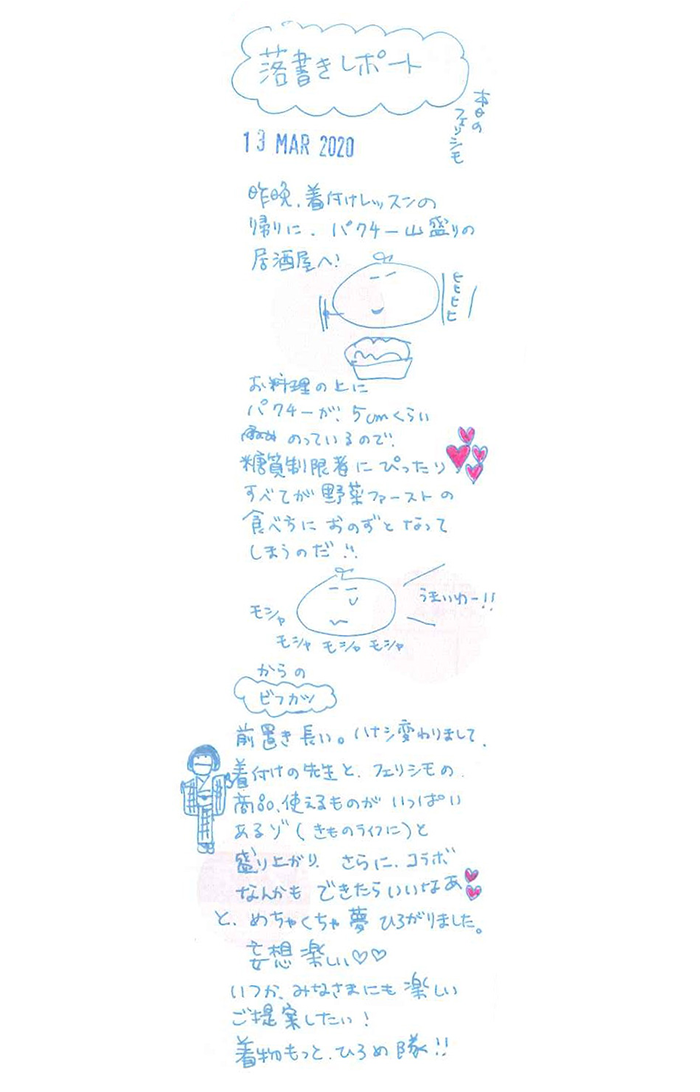 落書きレポート
本日の
フェリシモ
13 MAR 2020
昨晩、着付けレッスンの
帰りに、パクチー山盛りの
居酒屋へ!
ヒヒヒヒ
お料理の上に
パクチーが、5cmくらい
のっているので、
糖質制限者にぴったり
すべてが野菜ファーストの
食べ方におのずとなって
しまうのだ!!
うまいわー!!
モシャ
モシャ モシャ モシャ
からの
ビフカツ
前置き長い。ハナシ変わりまして、
着付けの先生と、フェリシモの
商品、使えるものがいっぱい
あるゾ(きものライフに)と
盛り上がり、さらに、コラボ
なんかもできたらいいなあ
と、めちゃくちゃ夢ひろがりました。
妄想楽しい♡♡
いつか、みなさまにも楽しい
ご提案したい!
着物もっと、ひろめ隊!!